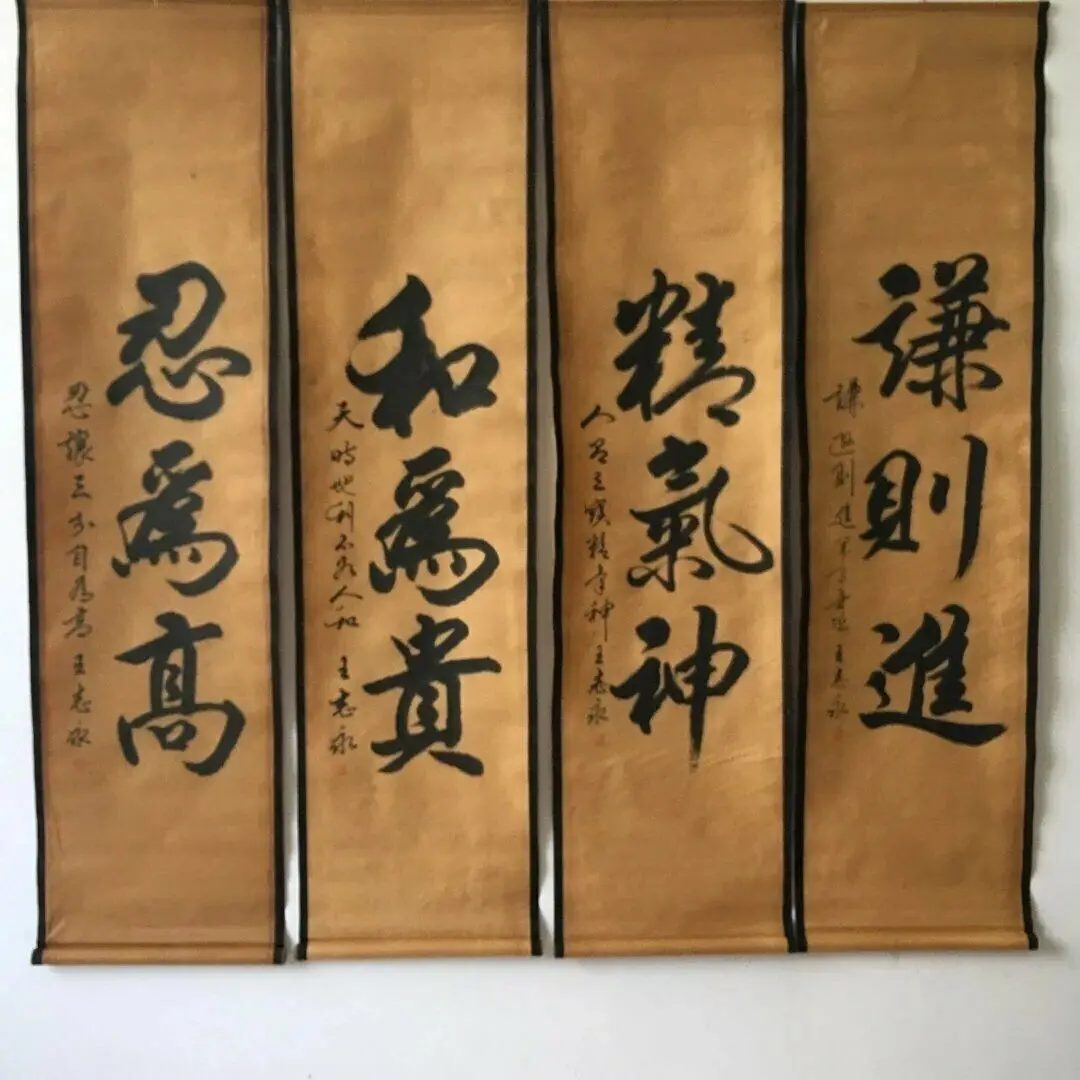 謙則進
則進 王志永
精氣神
人有三寶精氣神 王志永
和爲貴
天時地利不如人和 王志永
忍爲高
忍讓三分自爲高 王志永